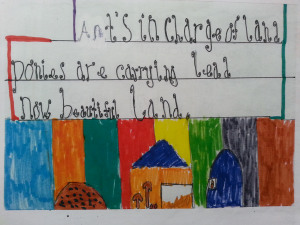 Ant's in charge of land
Ponies are carrying lead
Now beautiful land.